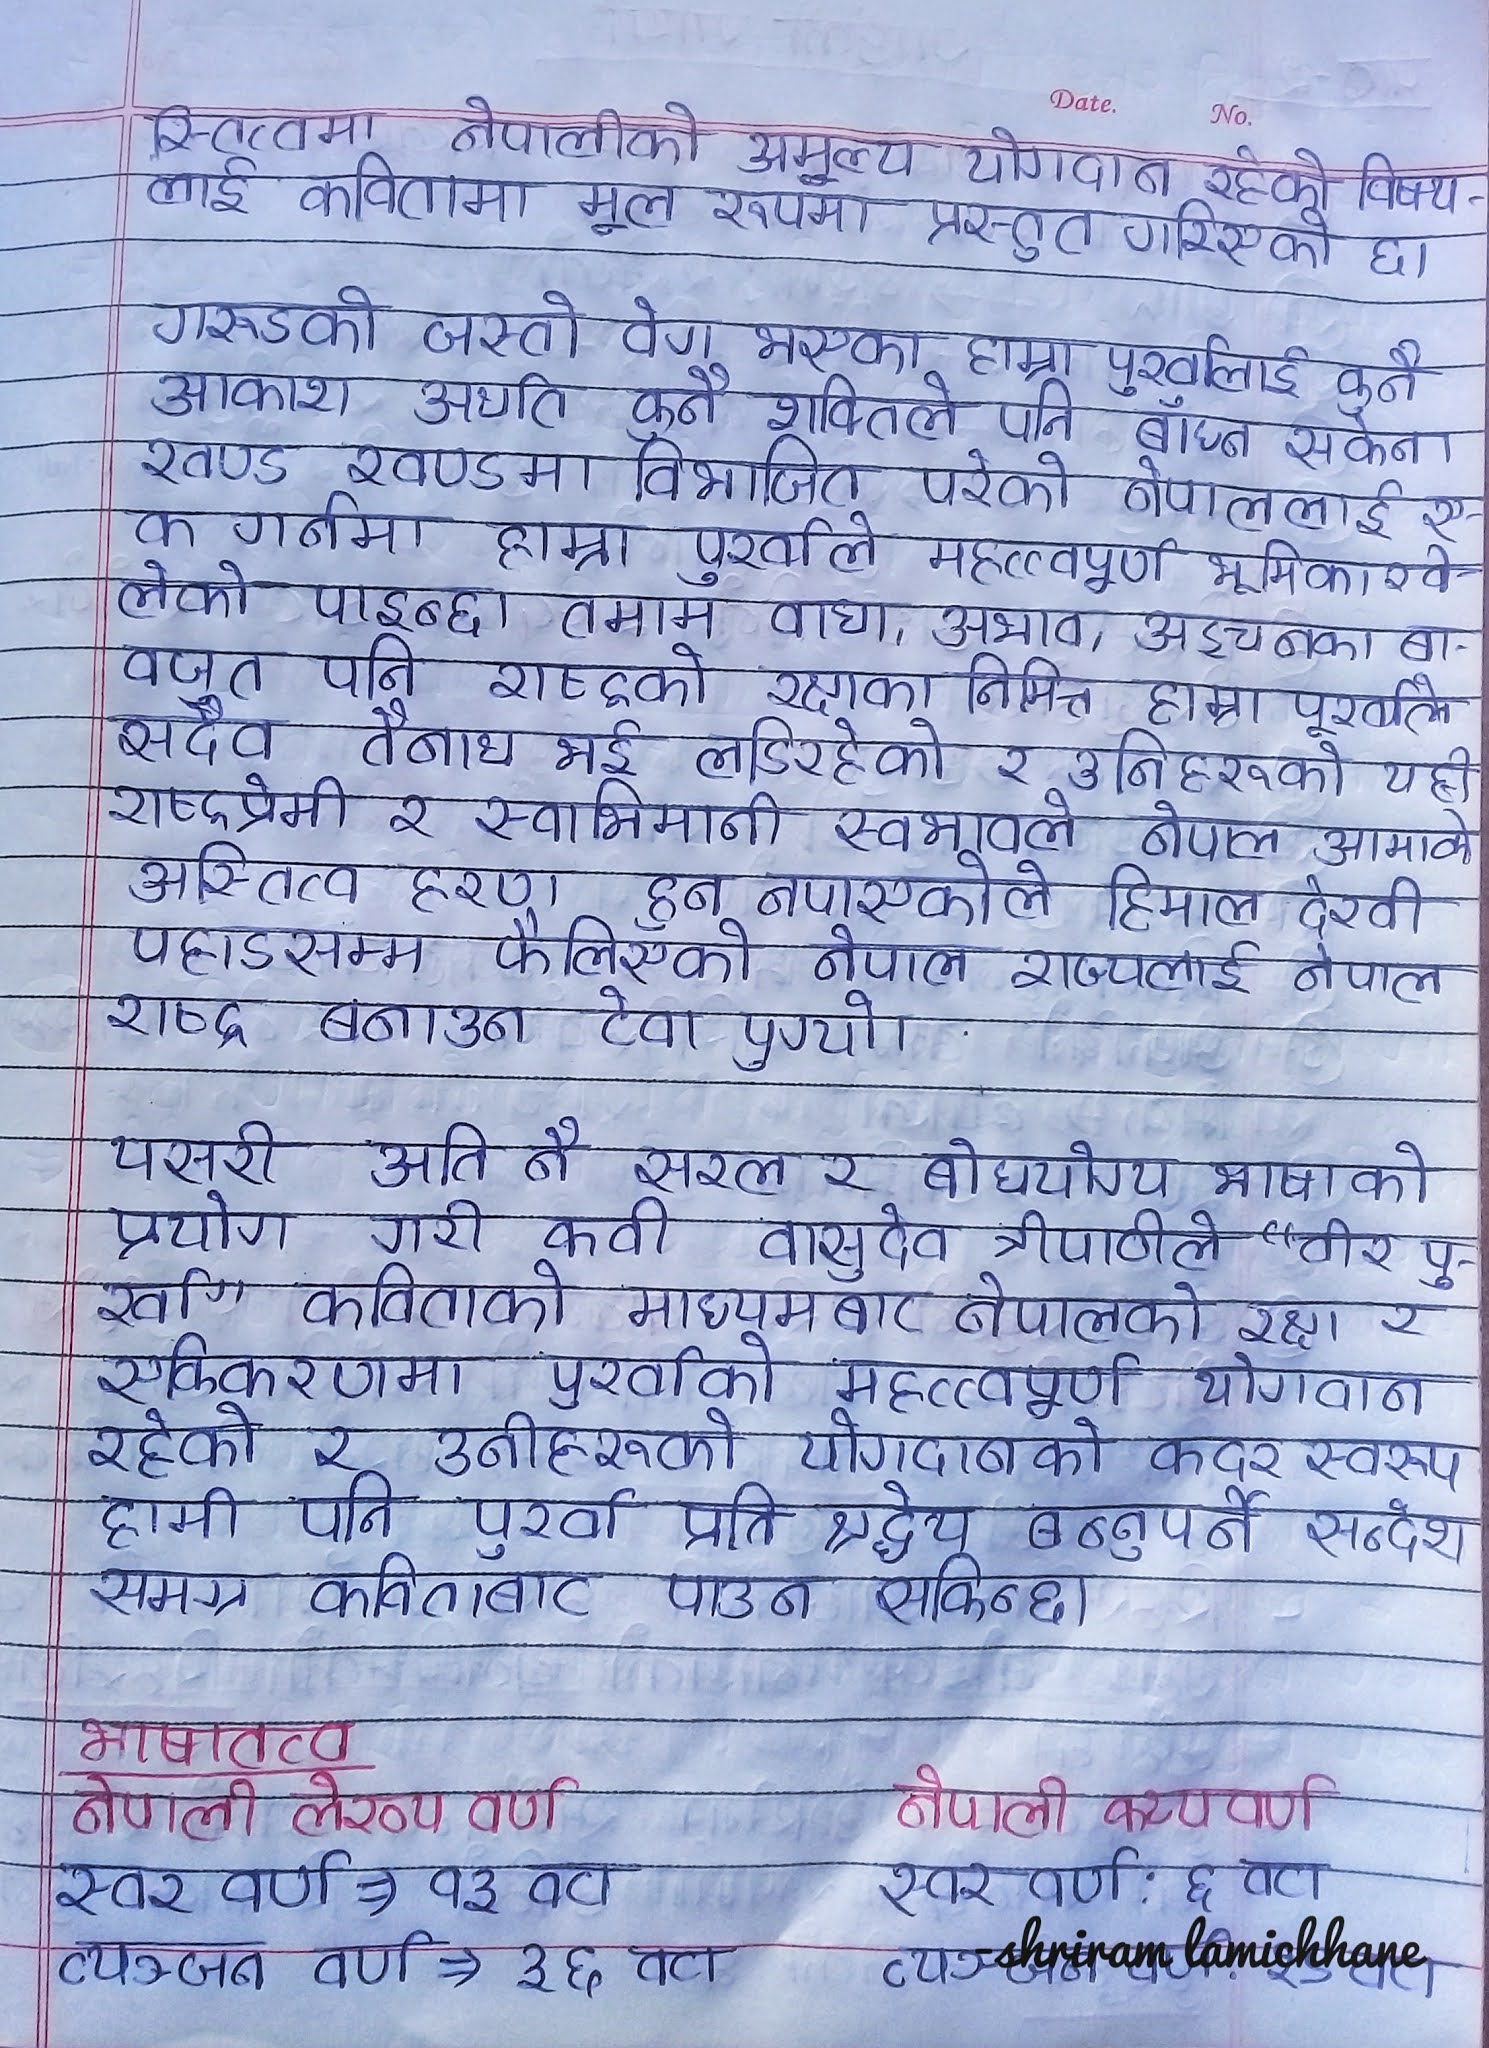 Date. No.
स्तित्वमा नेपालीको अमूल्य योगदान रहेको विषय-
लाई कवितामा मूल रूपमा प्रस्तुत गरिएको छ।
गरूडको जस्तो वेग भएका हाम्रा पुर्खालाई कुनै
आकाश अर्थात कुनै शक्तिले पनि बाँध्न सकेन।
खण्ड खण्डमा विभाजित परेको नेपाललाई ए-
क गर्नमा हाम्रा पुर्खाले महत्त्वपूर्ण भूमिका खे-
लेको पाइन्छ। तमाम वाधा, अभाव, अड्चनका बा-
वजुत पनि राष्ट्रको रक्षाका निमित्त हाम्रा पूर्खाले
सदैव तैनाथ भई लडिरहेको र उनिहरूको यही
राष्ट्रप्रेमी र स्वाभिमानी स्वभावले नेपाल आमाको
अस्तित्व हरण हुन नपाएकोले हिमाल देखी
पहाडसम्म फैलिएको नेपाल राज्यलाई नेपाल
राष्ट्र बनाउन टेवा पुग्यो।
यसरी अति नै सरल र बोधयोग्य भाषाको
प्रयोग गरी कवी वासुदेव त्रीपाठीले "वीर पु-
र्खा" कविताको माध्यमबाट नेपालको रक्षा र
एकिकरणमा पुर्खाको महत्त्वपूर्ण योगदान
रहेको र उनीहरूको योगदानको कदर स्वरूप
हामी पनि पुर्खा प्रति श्रद्धेय बन्नुपर्ने सन्देश
समग्र कविताबाट पाउन सकिन्छ।
भाषातत्व
नेपाली लेख्य वर्ण नेपाली कथ्य वर्ण
स्वर वर्ण ⇒ १३ वटा स्वर वर्ण: ६ वटा
व्यञ्जन वर्ण ⇒ ३६ वटा व्यञ्जन वर्ण:
-shriram lamichhane